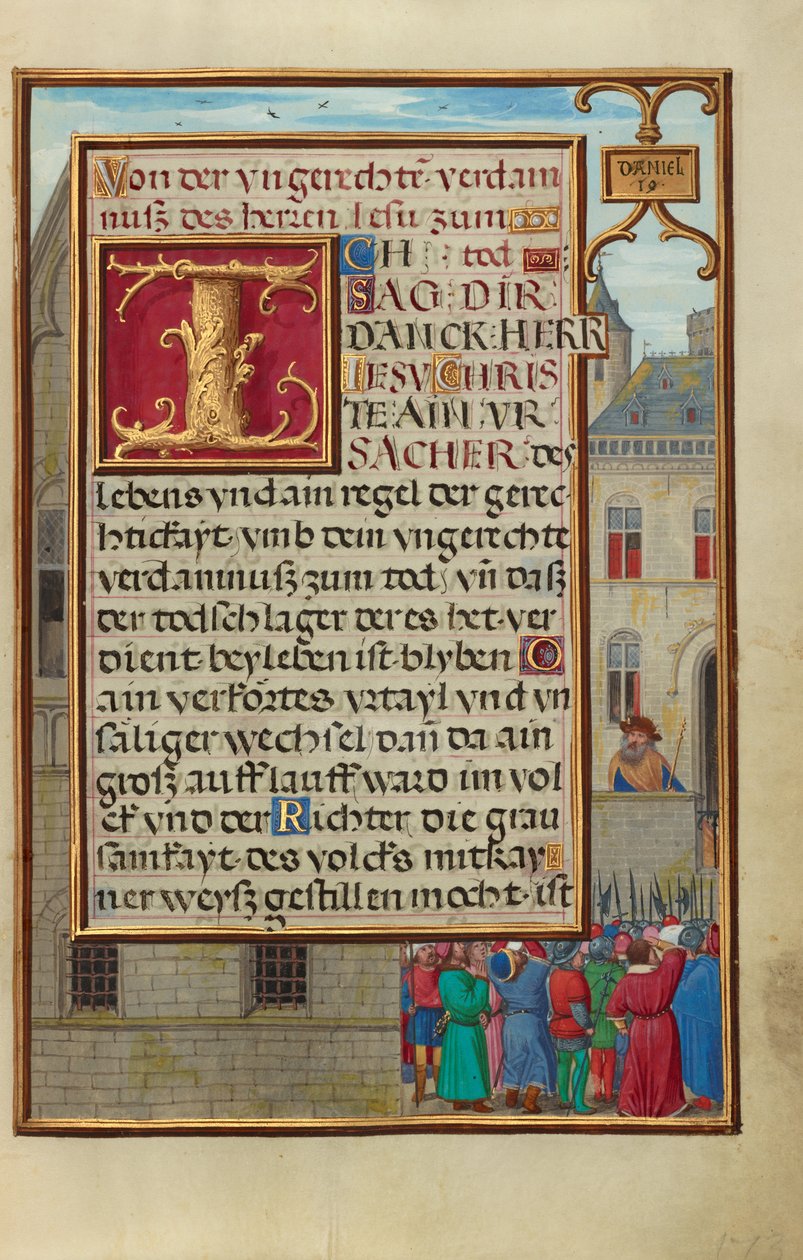 Von der vngerechtē verdam
nuſz des herren Ieſu zum
ICH : tod
SAG : DIR
DANCK : HERR
IESV CHRIS
TE AIN VR
SACHER des
lebens vnd ain regel der gerec-
htickayt, vmb dein vngerechte
verdamnuſz zum tod, vn̄ daſz
der todſchlager der es het ver
dient bey leben iſt blyben O
ain verkörtes vrtayl vnd vn
ſäliger wechſel, dan̄ da ain
groſz aufflauff ward im vol
ck vnd der Richter die grau
ſamkayt des volcks mit kay
ner weyſz geſtillen mocht iſt
DANIEL
19